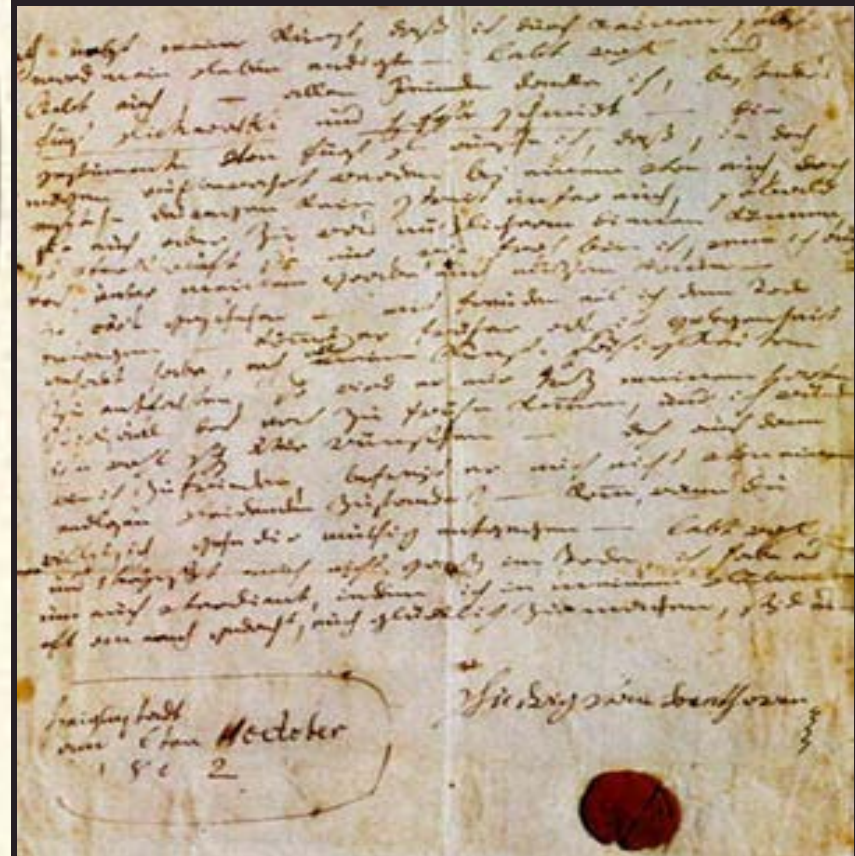 meine Kunst, daß ich durch keinen selbst
mord mein Leben endigte — lebt wohl und
liebt euch, — allen Freunden danke ich, besonders
fürst Lichnowski und Professor Schmidt — die
Instrumente von fürst L. wünsche ich, daß sie doch
mögen aufbewahrt werden bey einem von euch, doch
entstehe deswegen kein Streit unter euch, sobald
sie euch aber zu was nüzlicherm dienen können,
so verkauft sie nur, wie froh bin ich, wenn ich auch
noch unter meinem Grabe euch nüzen kann —
so wärs geschehen — mit freuden eil ich dem Tode
entgegen — kömmt er früher als ich gelegenheit
gehabt habe, noch alle meine Kunst-Fähigkeiten
zu entfalten, so wird er mir troz meinem Harten
Schicksal doch noch zu frühe kommen, und ich würde
ihn wohl später wünschen — doch auch dann
bin ich zufrieden, befreyt er mich nicht von einem
endlosen leidenden Zustande? — Komm, wann du
willst, ich gehe dir muthig entgegen — lebt wohl
und Vergeßt mich nicht ganz im Tode, ich habe es
um euch verdient, indem ich in meinem Leben
oft an euch gedacht, euch glücklich zu machen, seyd es —
Ludwig van Beethoven
Heiglnstadt
am 6ten october
1802